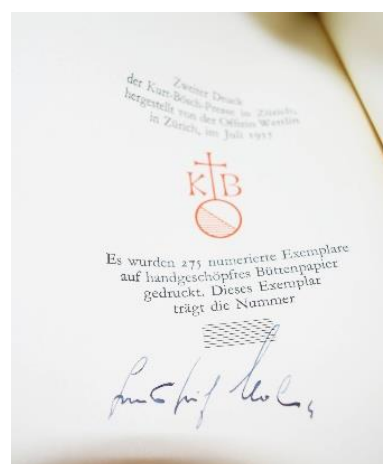 Zweiter Druck
der Kurt-Bösch-Presse in Zürich,
hergestellt von der Offizin
in Zürich, im Juli 1957
K B
Es wurden 275 numerierte Exemplare
auf handgeschöpftes Büttenpapier
gedruckt. Dieses Exemplar
trägt die Nummer